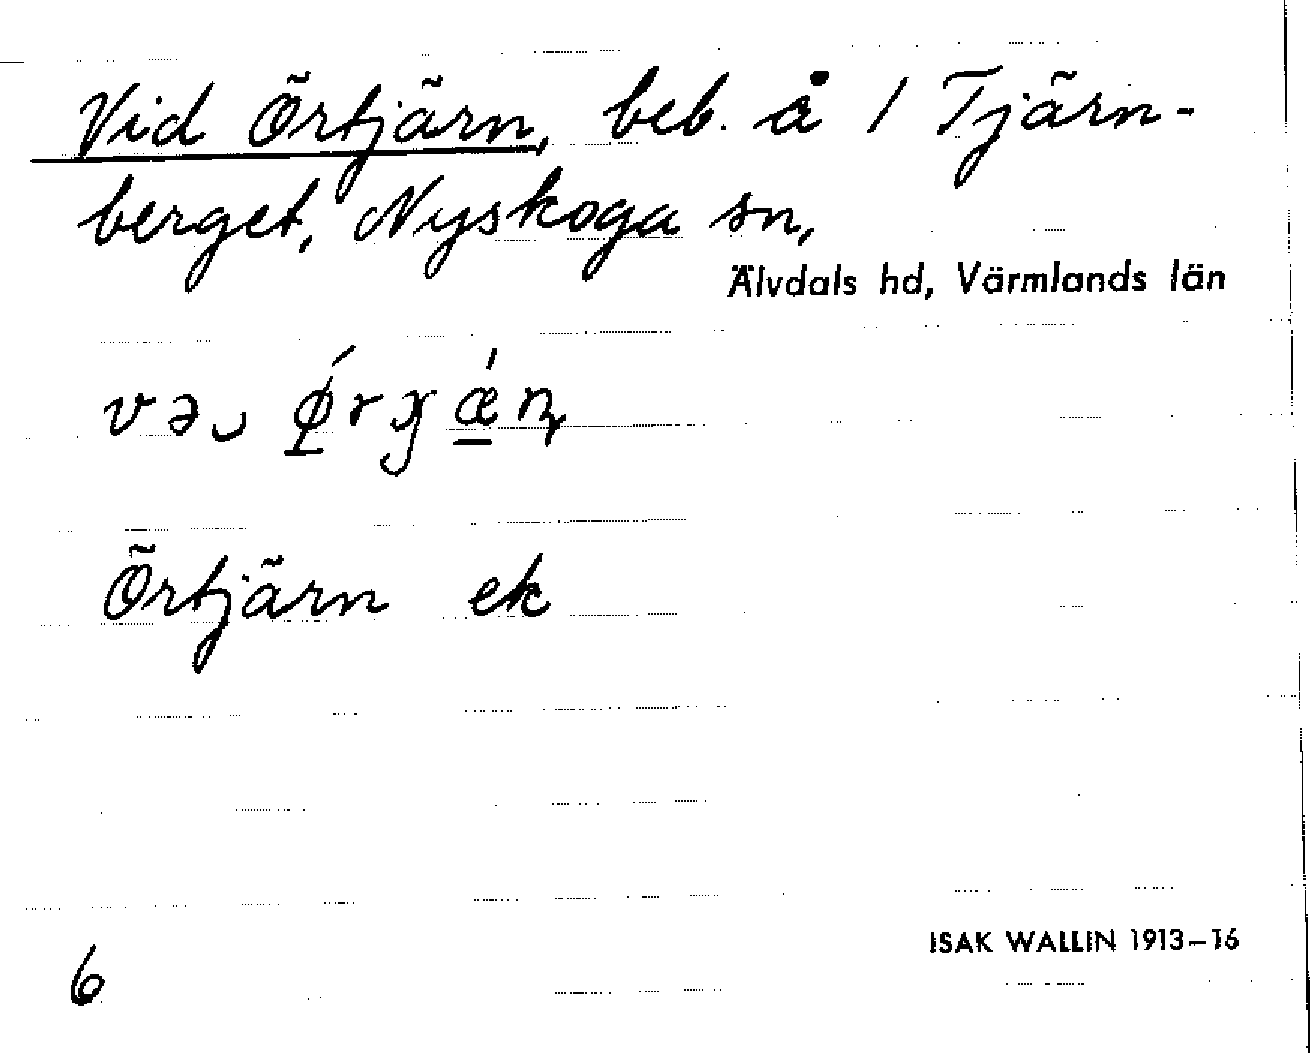 Vid Örtjärn, beb. å 1 Tjärn-
berget, Nyskoga sn,
Älvdals hd, Värmlands län
Örtjärn ek
ISAK WALLIN 1913–16
6